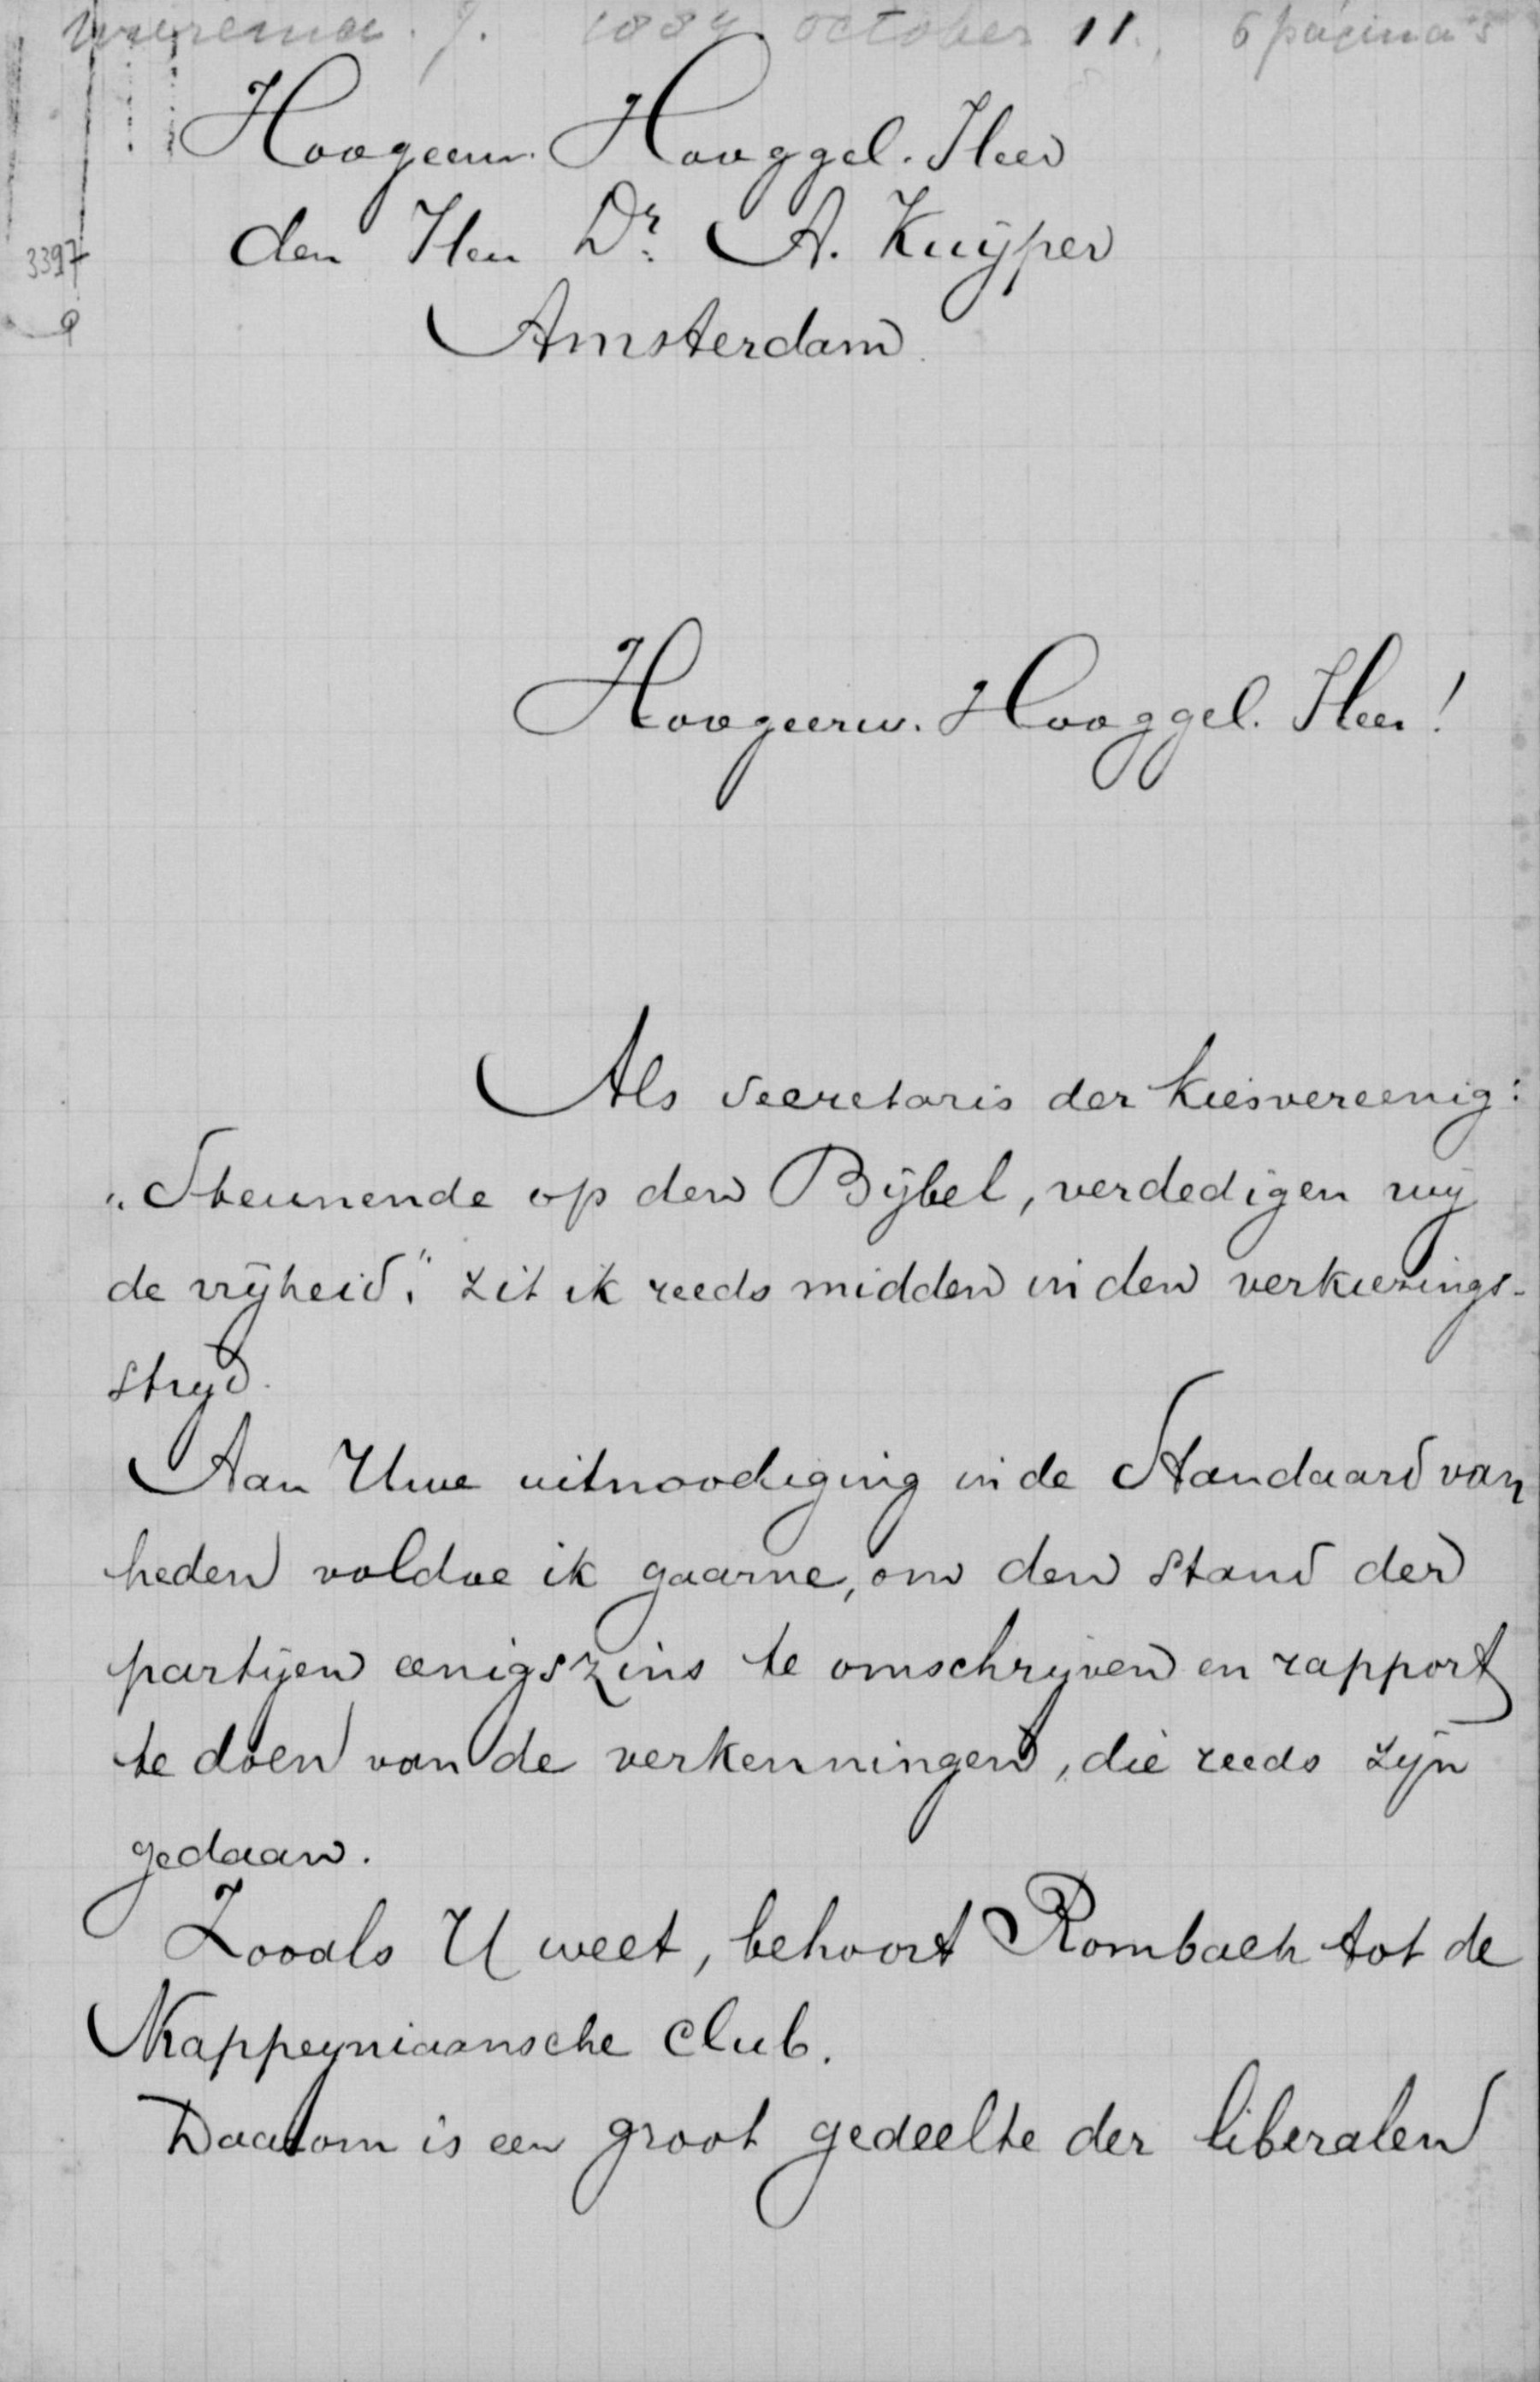 J. 1884 october 11. 6 pagina's
Hoogeerw. Hooggel. Heer
den Heer Dr. A. Kuÿper
3397
Amsterdam.
Hoogeerw. Hooggel. Heer!
Als secretaris der kiesvereenig:
„Steunende op den Bijbel, verdedigen wij
de vrijheid." zit ik reeds midden in den verkiezings-
strijd.
Aan Uwe uitnoodiging in de Standaard van
heden voldoe ik gaarne, om den stand der
partijen eenigszins te omschrijven en rapport
te doen van de verkenningen, die reeds zijn
gedaan.
Zooals U weet, behoort Rombach tot de
Kappeyniaansche club.
Daarom is een groot gedeelte der liberalen